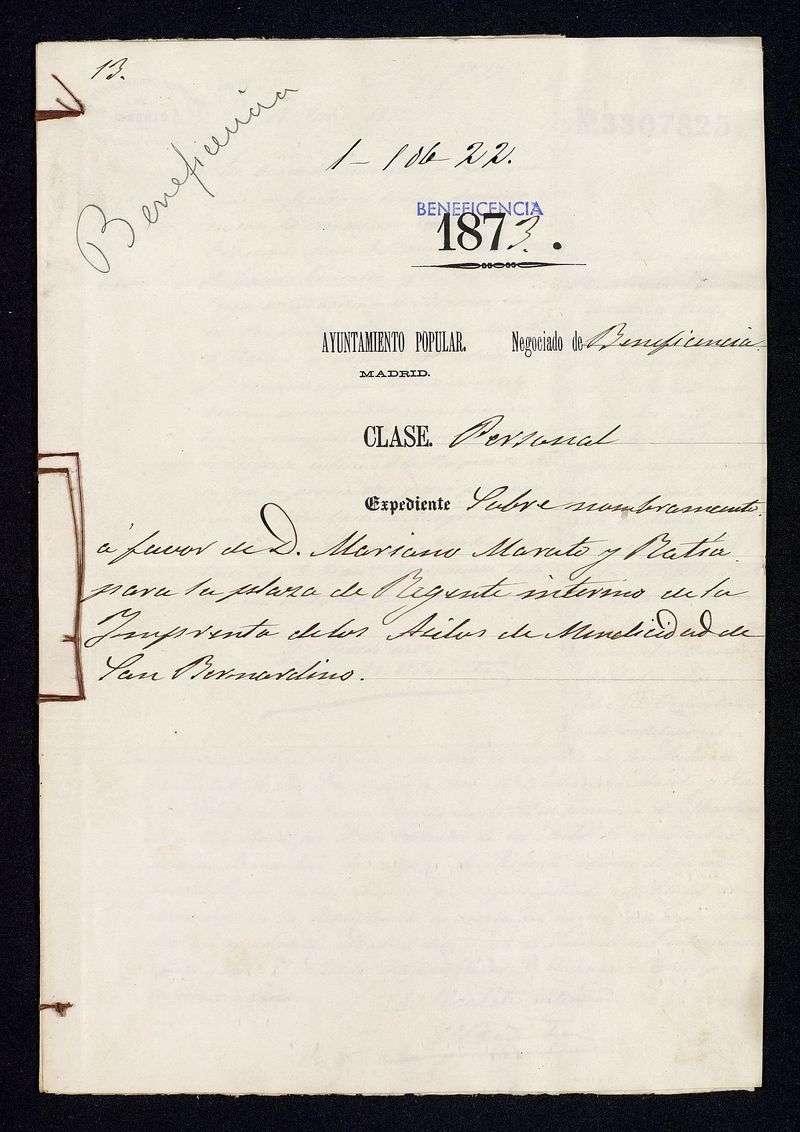 13.
Beneficencia
1-106-22.
BENEFICENCIA
1873.
AYUNTAMIENTO POPULAR. Negociado de Beneficencia.
MADRID.
CLASE. Personal
Expediente Sobre nombramiento
á favor de D. Mariano Marato y Ratia
para la plaza de Regente interino de la
Imprenta de los Asilos de Mendicidad de
San Bernardino.